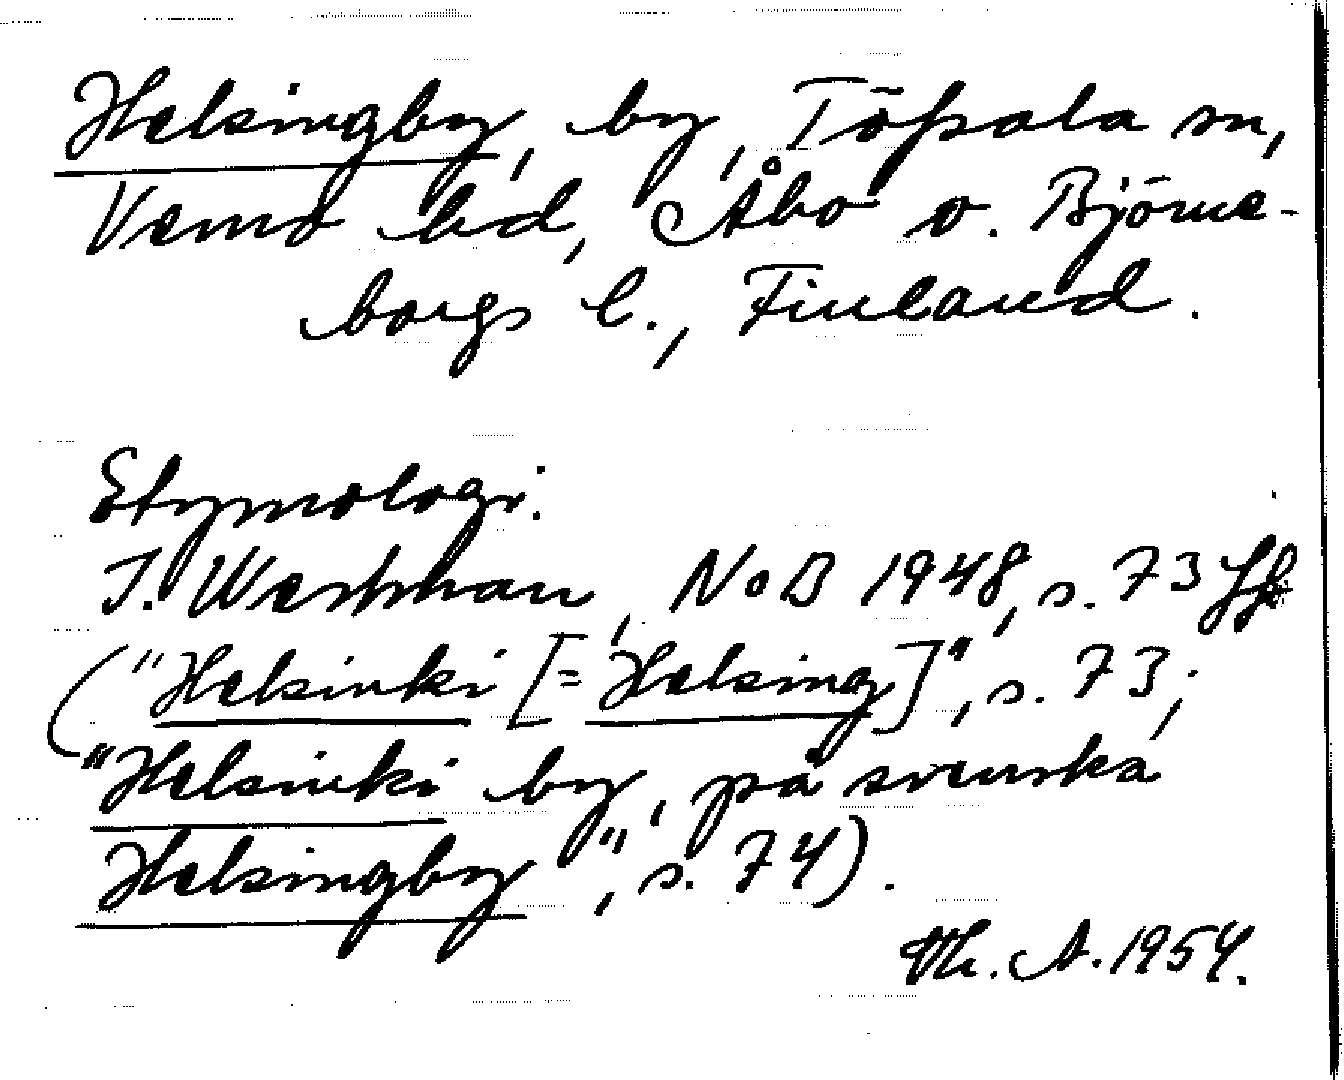 Helsingby, by, Töfsala sn,
Vemo hd, Åbo o. Björne-
borgs l., Finland.
Etymologi:
T. Westman, NoB 1948, s. 73 ff
("Helsinki [= Helsing]", s. 73;
"Helsinki by, på svenska
Helsingby", s. 74).
Th. A. 1954.